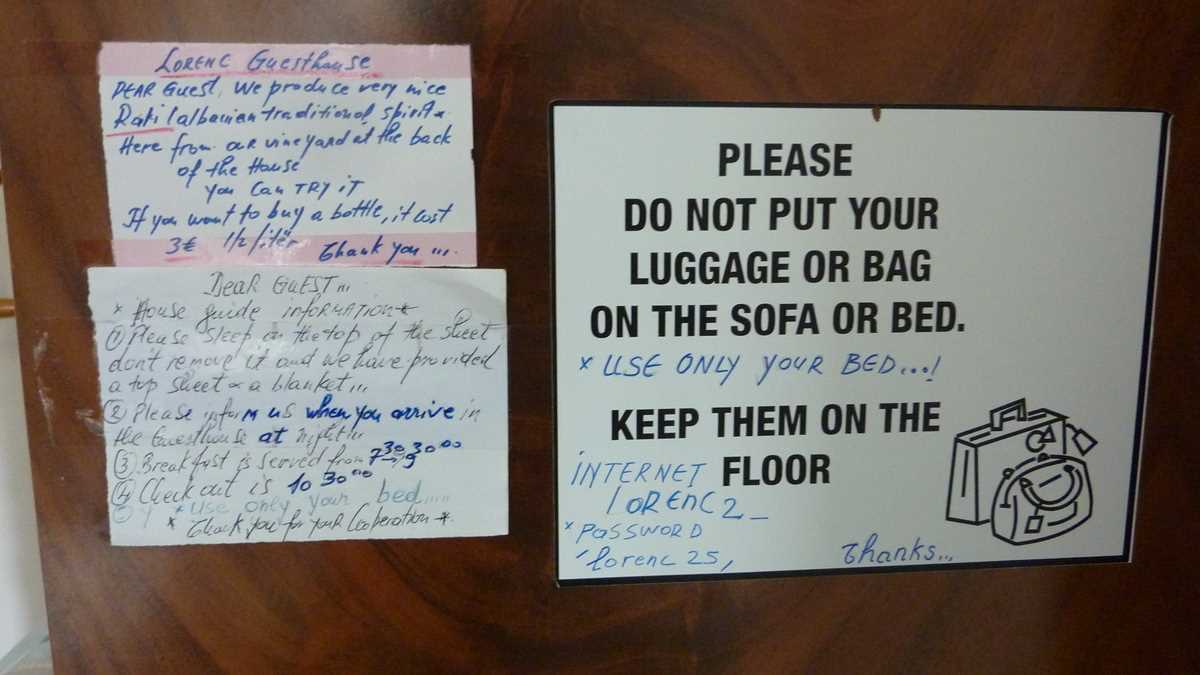 LORENC Guesthouse
DEAR Guest, We produce very nice
Raki (albanien traditional spirit
Here from our vineyard at the back
of the House
you Can TRY iT
If you want to buy a bottle, it cost
3€ 1/2 litër Thank you ...
Dear GUEST...
* House guide information *
① Please sleep on the top of the sheet
don't remove it and we have provided
a top sheet a blanket...
② Please inform us when you arrive in
the Guesthouse at night...
③ Breakfast is served from 7 30 - 9 30
④ Check out is 10 30
* Use only your bed.....
* Thank you for your Cooperation *
PLEASE
DO NOT PUT YOUR
LUGGAGE OR BAG
ON THE SOFA OR BED.
* USE ONLY YOUR BED...!
KEEP THEM ON THE
FLOOR
INTERNET
LORENC2_
* PASSWORD
lorenc 25,
Thanks...